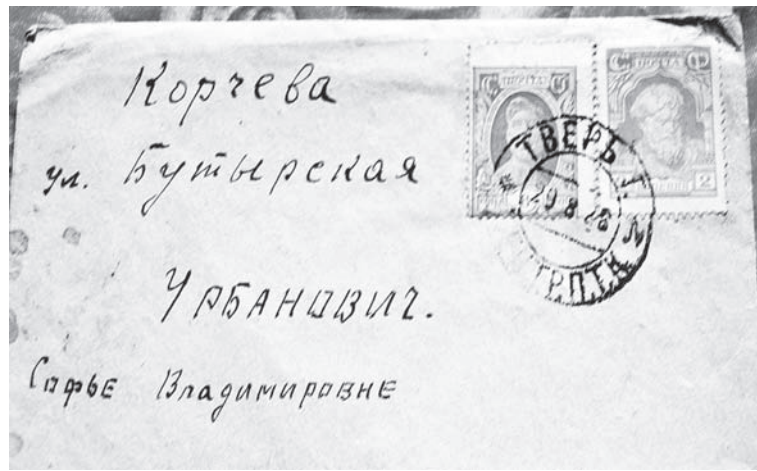 Корчева
ул. Бутырская
Урбанович.
Софье Владимировне
ПОЧТА
ПОЧТА
2
ТВЕРЬ Г.
29 8 28